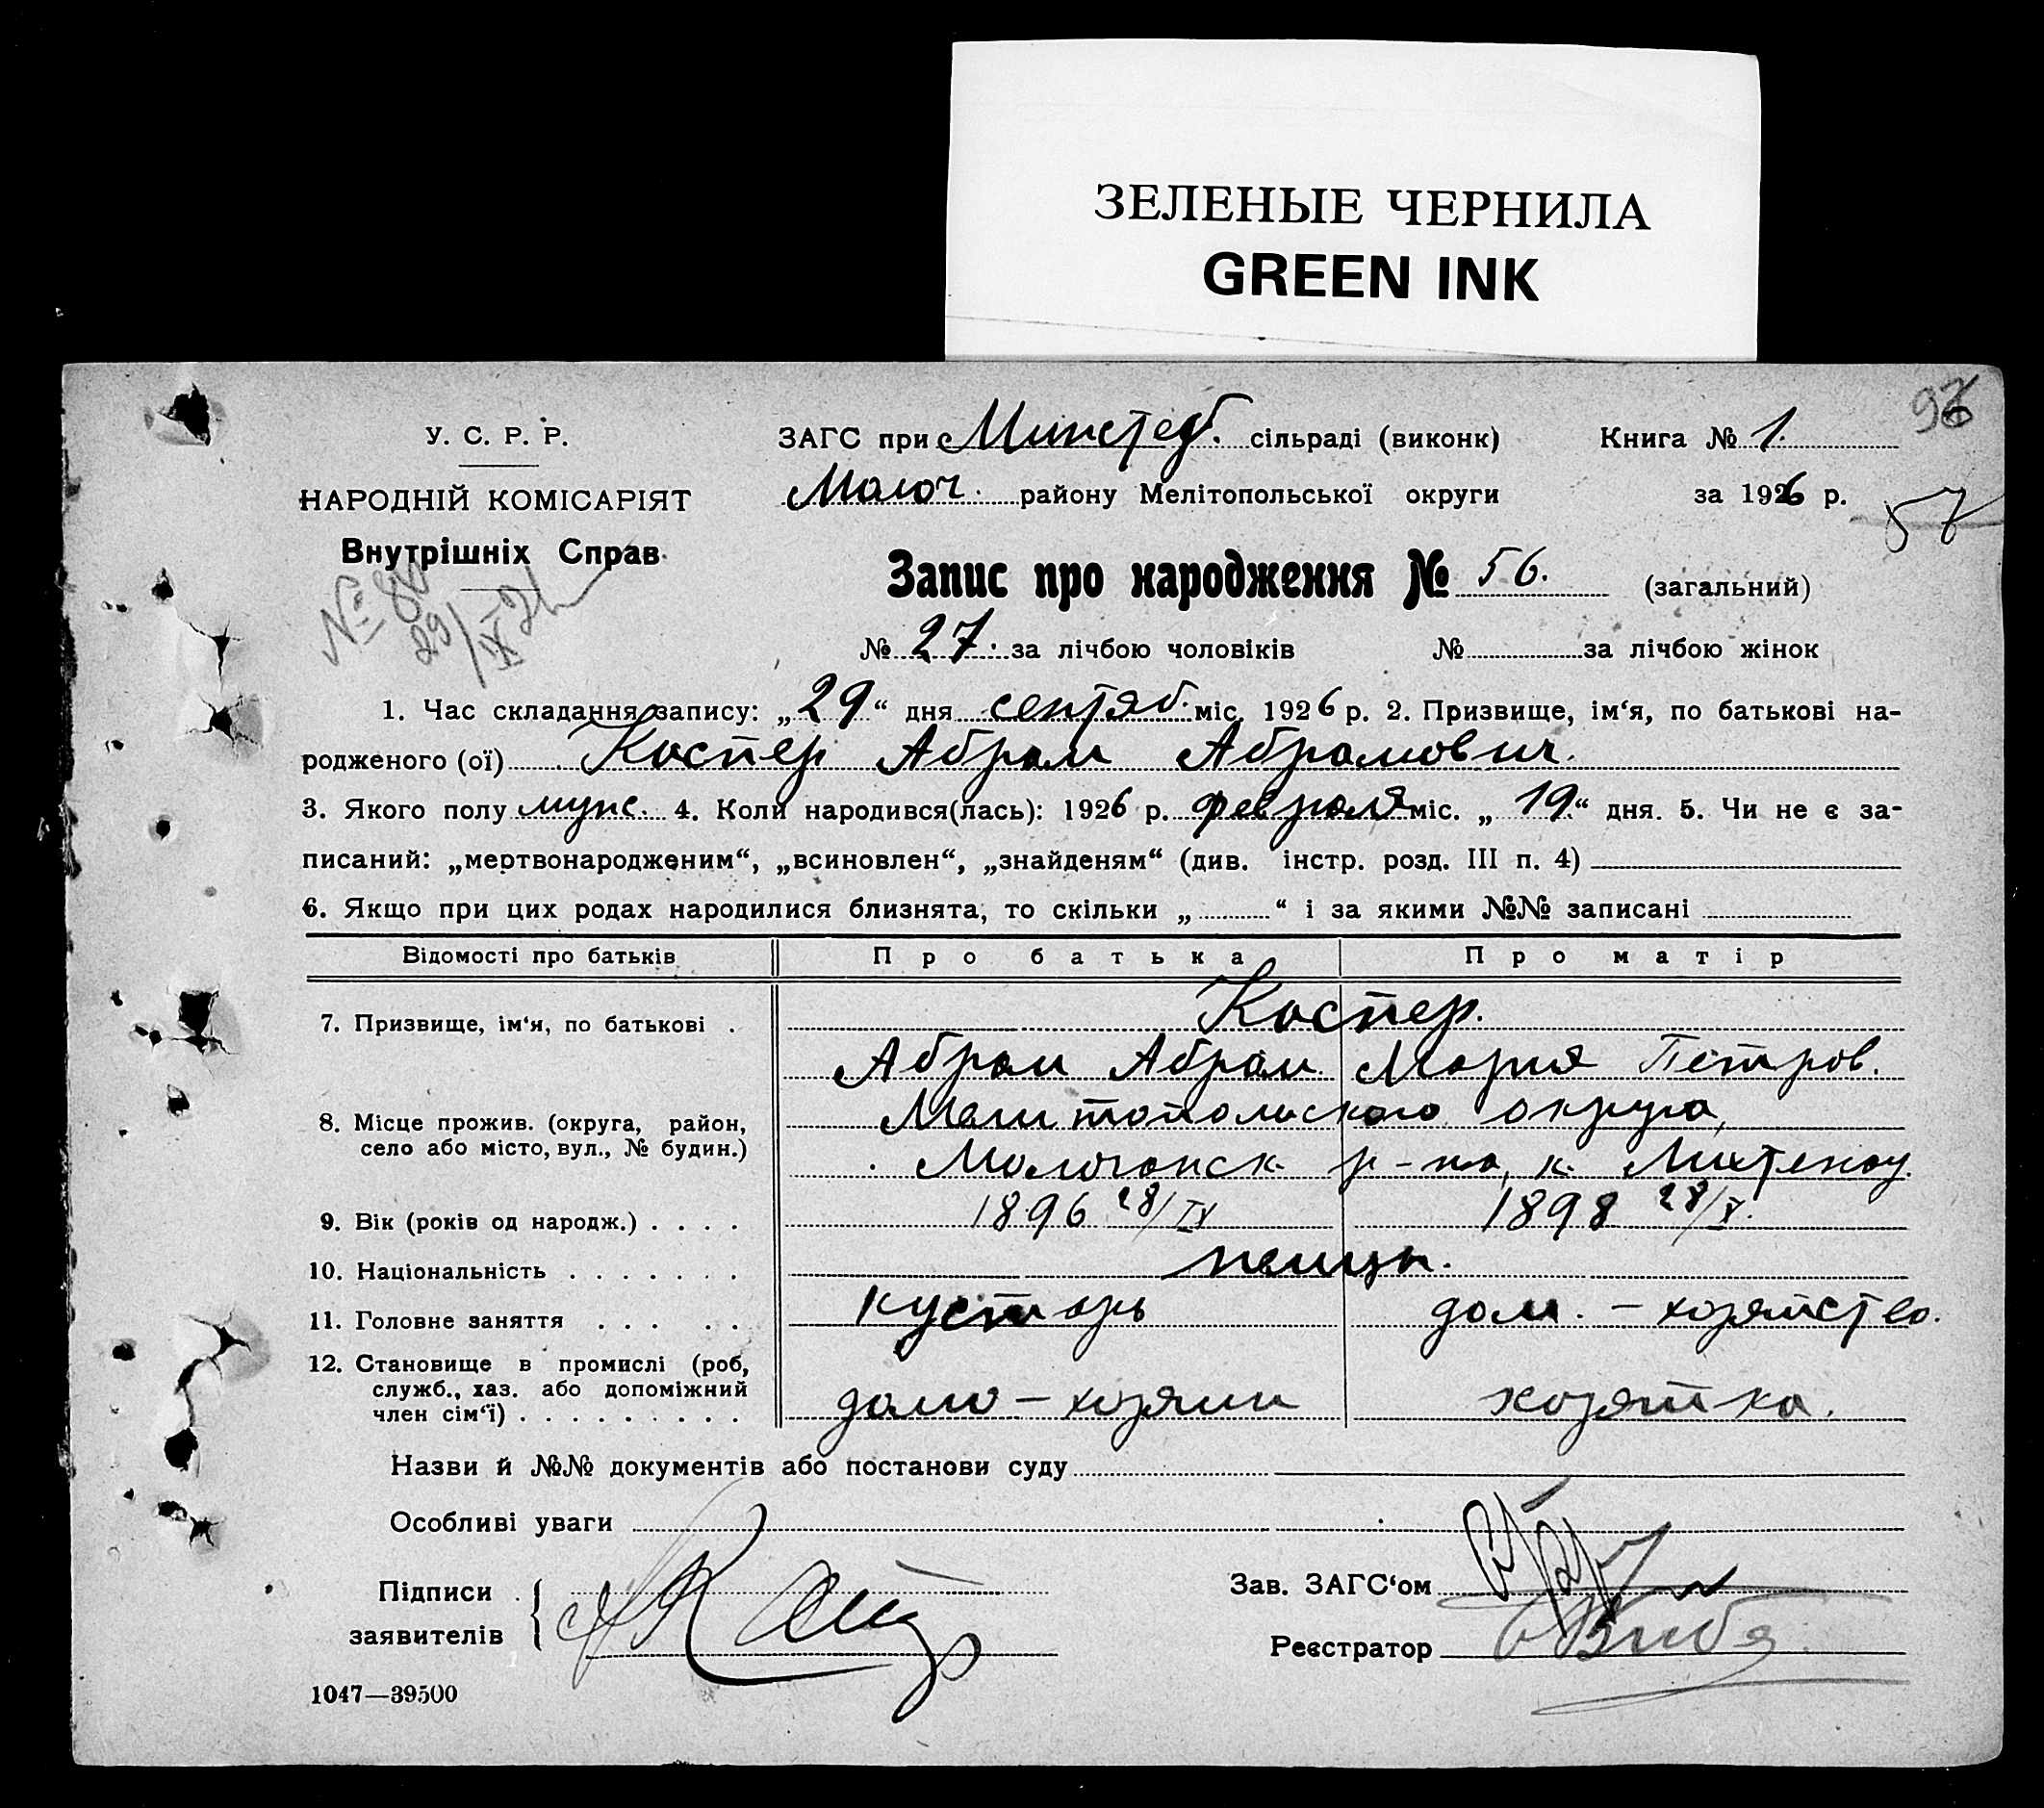 ЗЕЛЕНЫЕ ЧЕРНИЛА
GREEN INK
У. С. Р. Р.
НАРОДНІЙ КОМІСАРІЯТ
Внутрішніх Справ
№ 80
29/IX 26
ЗАГС при Минстеб. сільраді (виконк)
Молоч. району Мелітопольської округи
Книга № 1.
за 1926 р.
57
Запис про народження № 56. (загальний)
№ 27. за лічбою чоловіків № за лічбою жінок
1. Час складання запису: „29“ дня сентяб. міс. 1926 р. 2. Призвище, ім‘я, по батькові на-
родженого (ої) Каспер Абрам Абрамович.
3. Якого полу муж. 4. Коли народився(лась): 1926 р. февраля міс. „19.“ дня. 5. Чи не є за-
писаний: „мертвонародженим“, „всиновлен“, „знайденям“ (див. інстр. розд. III п. 4)
6. Якщо при цих родах народилися близнята, то скільки „ “ і за якими №№ записані
Відомості про батьків Про батька Про матір
7. Призвище, ім‘я, по батькові . Каспер.
Абрам Абрам. Мария Петров.
8. Місце прожив. (округа, район,
село або місто, вул., № будин.)
Мелитопольского округа,
Молочанск р-на, к. Лихтенау.
9. Вік (років од народж.) . . . . 1896 28/IX 1898 28/X.
10. Національність . . . . . . . немцы.
11. Головне заняття . . . . . кустарь дом. - хозяйство.
12. Становище в промислі (роб,
служб., хаз. або допоміжний
член сім‘ї) . . . . . . . . . домо - хозяин хозяйка.
Назви й №№ документів або постанови суду
Особливі уваги
Підписи
заявителів
Зав. ЗАГС‘ом
Реєстратор
1047—39500